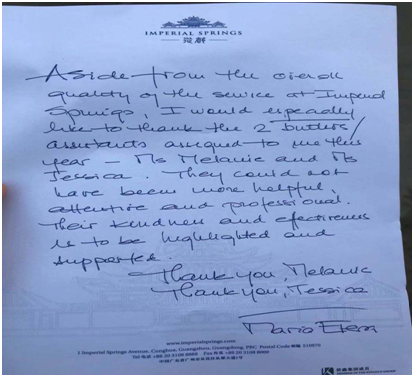 IMPERIAL SPRINGS
Aside from the overall
quality of the service at Imperial
Springs, I would especially
like to thank the 2 butlers/
assistants assigned to me this
year – Ms Melanie and Ms
Jessica. They could not
have been more helpful,
attentive and professional.
Their kindness and efectiveness
is to be highlighted and
supported.
Thank you, Melanie
Thank you, Jessica
Mario
www.imperialsprings.com
1 Imperial Springs Avenue, Conghua, Guangzhou, Guangdong, PRC Postal Code